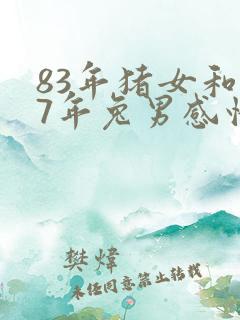 83年猪女和
7年兔男感情
樊炜
未经同意禁止转载